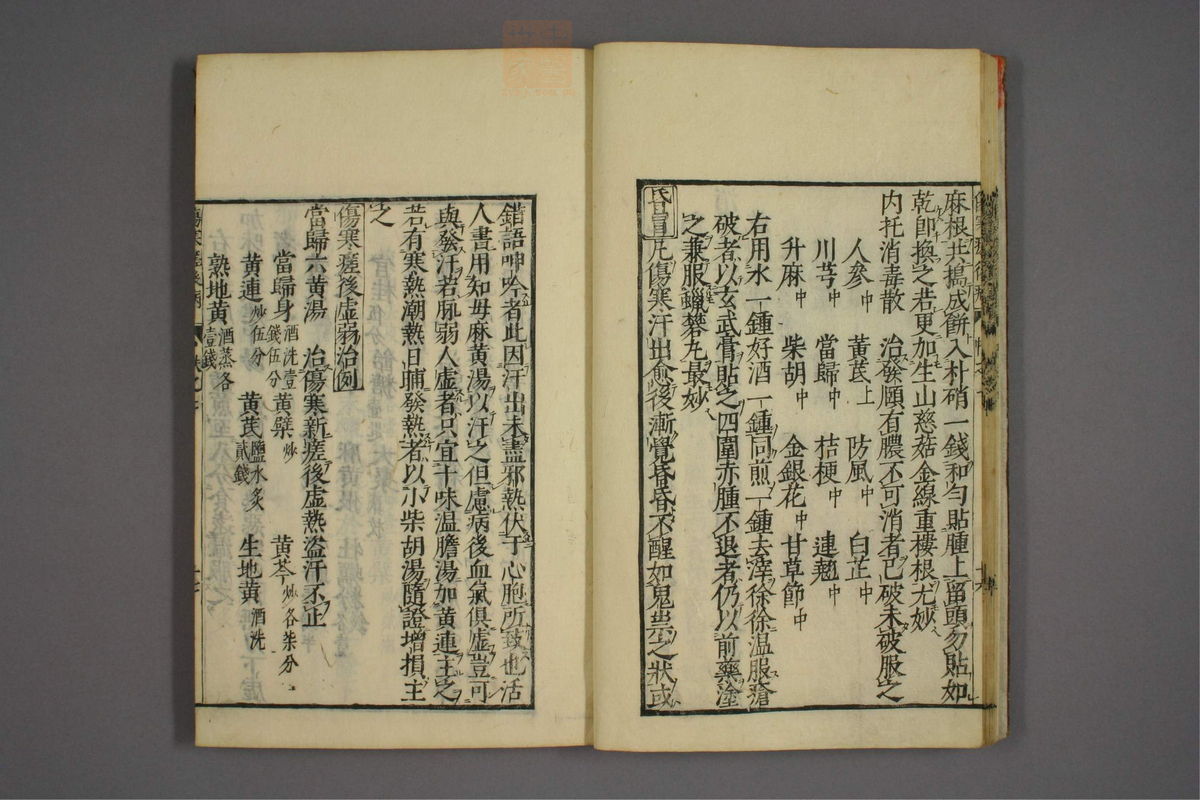 麻根共搗成餅入朴硝一錢和勻貼腫上留頭勿貼如
乾即換之若更加生山慈菇金線重樓根尤妙
内托消毒散　治發頤有膿不可消者已破未破服之
人參中　黃芪上　防風中　白芷中
川芎中　當歸中　桔梗中　連翹中
升麻中　柴胡中　金銀花中　甘草節中
右用水一鍾好酒一鍾同煎一鍾去滓徐徐温服瘡
破者以玄武膏貼之四圍赤腫不退者仍以前藥塗
之兼服蠟礬丸最妙
昏冒　凡傷寒汗出愈後漸覺昏昏不醒如鬼祟之狀或
錯語呻吟者此因汗出未盡邪熱伏于心胞所致也活
人書用知母麻黃湯以汗之但慮病後血氣俱虛豈可
與發汗若脉弱人虛者只宜十味温膽湯加黃連主之
若有寒熱潮熱日晡發熱者以小柴胡湯隨證增損主
之
傷寒瘥後虛弱治例
當歸六黃湯　治傷寒新瘥後虛熱盜汗不止
當歸身酒洗壹錢伍分　黃蘗炒　黃芩炒各柒分
黃連炒伍分　黃芪鹽水炙貳錢　生地黃酒洗
熟地黃酒蒸各壹錢